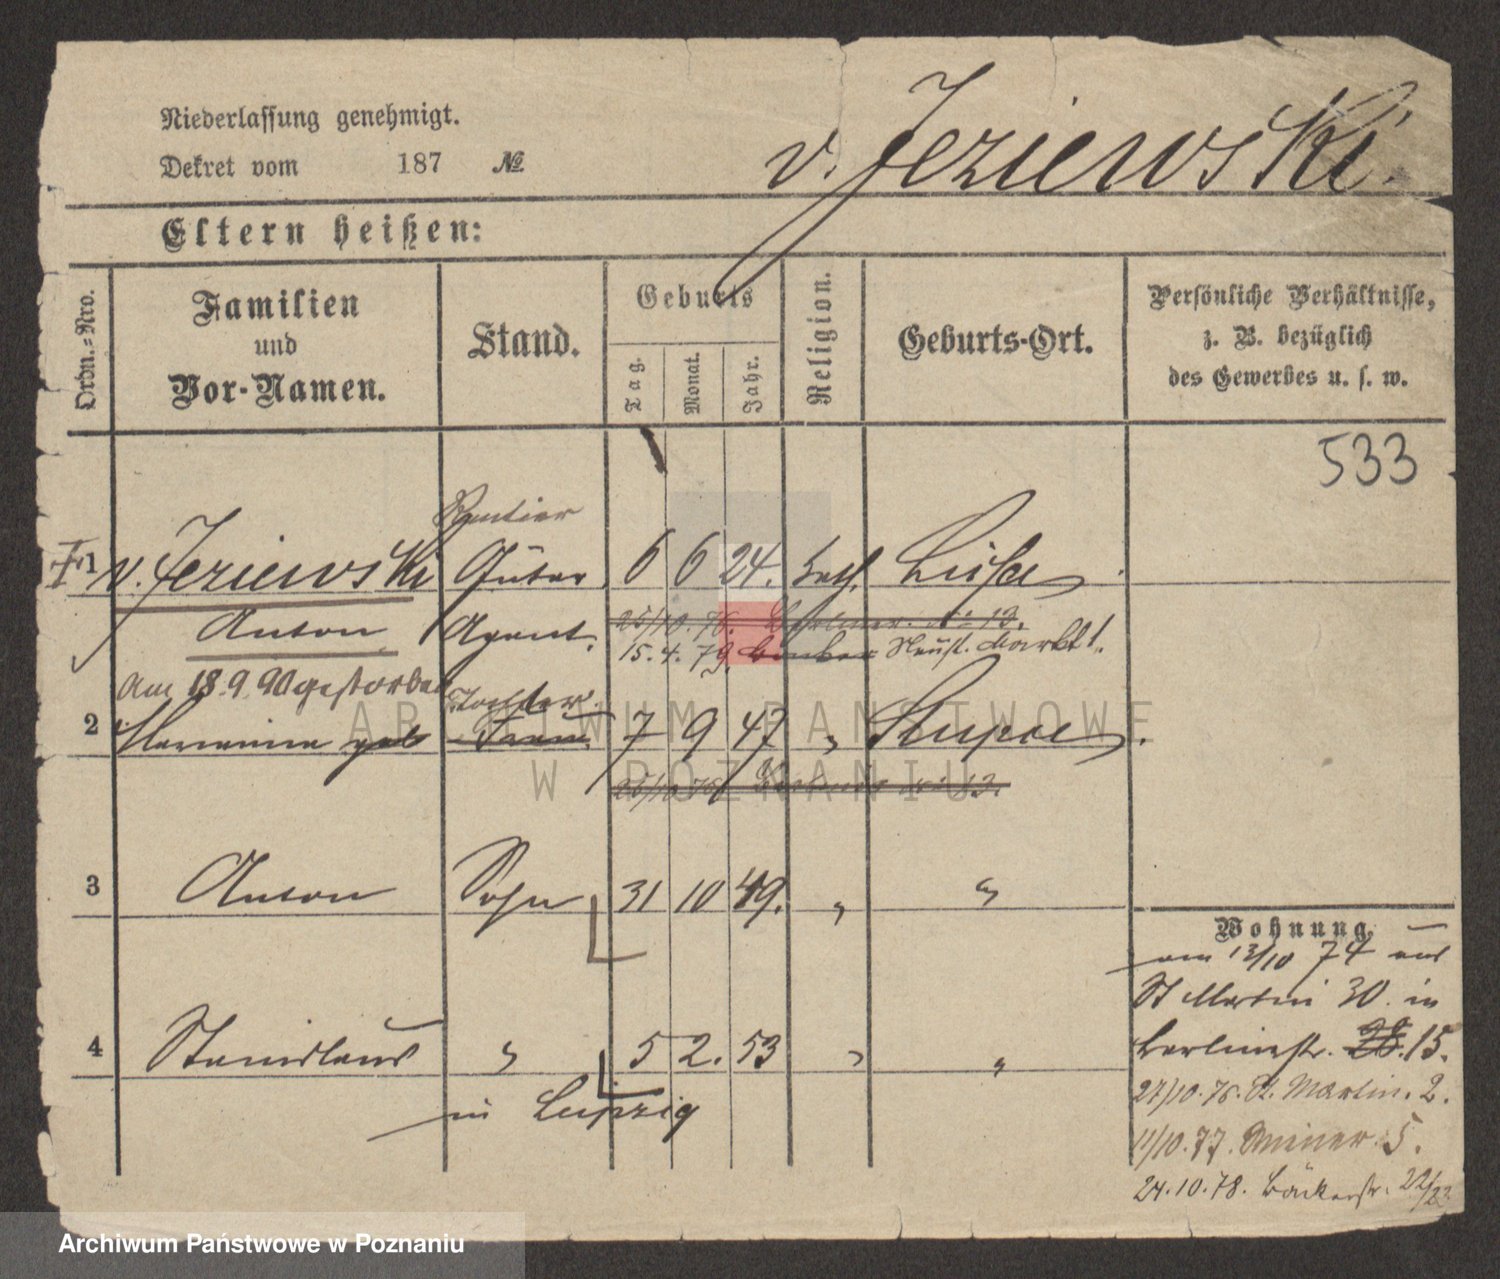 Niederlassung genehmigt.
Dekret vom 187 №
v. Jeziewski.
Eltern heißen:
Ordn.-Nro.
Familien und Vor-Namen.
Stand.
Geburts
Tag.
Monat.
Jahr.
Religion.
Geburts-Ort.
Persönliche Verhältnisse,
z. B. bezüglich
des Gewerbes u. s. w.
533
Rentier
1 v. Jeziewski Güter 6 6 24. kath.
Anton Agent.
25/10. 76.
15. 4. 79. Neust. Markt 1.
Am 18. 9. 90 gestorben Tochter
2 Marianna geb Frau 7 9 47 "
25/10 76
3 Anton Sohn 31 10 49. " "
4 Stanislaus " 5 2. 53 " "
in Leipzig
Wohnung.
am 13/10 74 aus
St Martin 30. in
Berlinerstr. 28. 15.
27/10. 76. St. Martin. 2.
11/10. 77. 5.
24. 10. 78. Bäckerstr. 22/23
ARCHIWUM PAŃSTWOWE
W POZNANIU
Archiwum Państwowe w Poznaniu